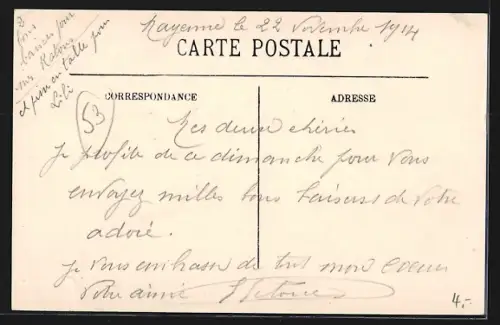 Mayenne le 22 Novembre 1914
CARTE POSTALE
CORRESPONDANCE
ADRESSE
53
Mes deux chéries
Je profite de ce dimanche pour vous
envoyez milles bons baisers de votre
adoré.
Je vous embrasse de tout mon coeur
votre aimé
bons
baisers pour
Lili
4.-